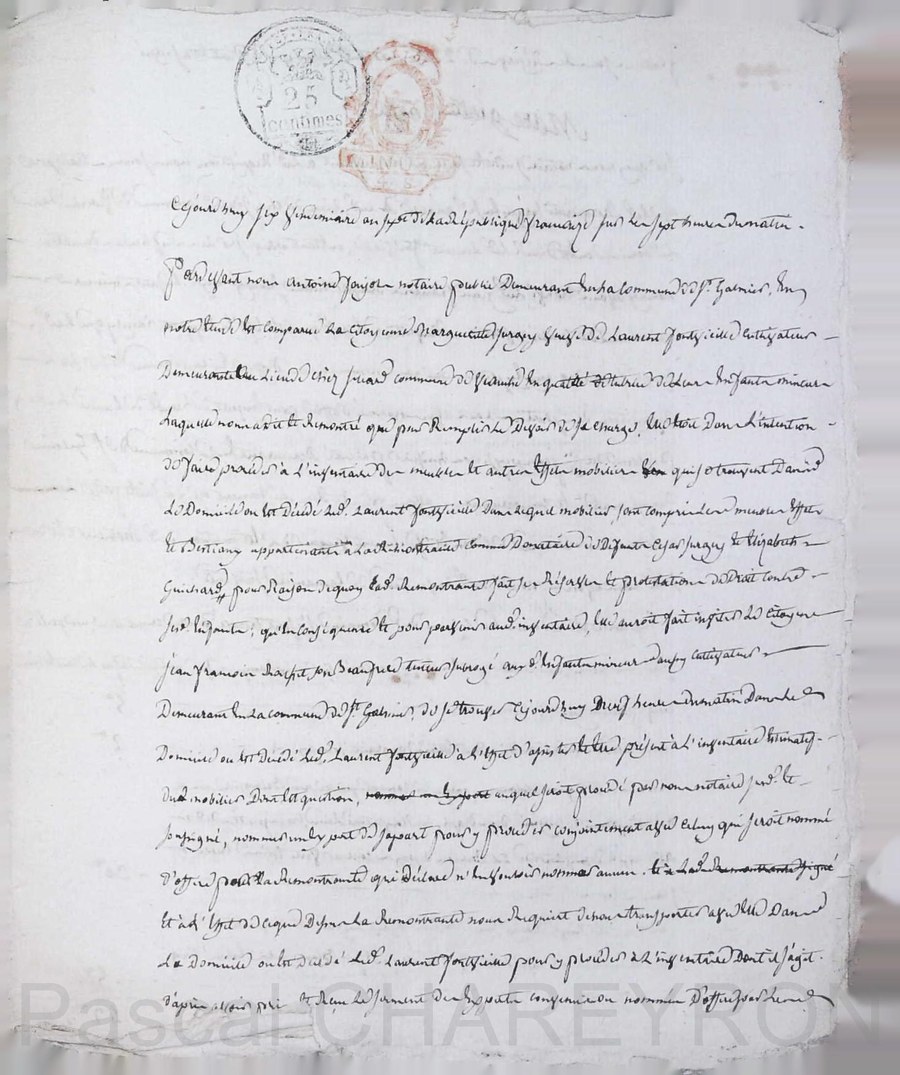 25
centimes
Cejourdhuy six vendemiaire an sept de la Republique francaise sur les sept heures du matin.
Pardevant nous antoine notaire public Demeurant en la Commune de St. Galmier, En
notre Etude Est comparue La Citoyenne Marguerite veuve de Laurent fontvieille Cultivateur
Demeurante au Lieu de chez commune de En qualité de tutrice de Leurs Enfants mineurs
Laquelle nous a dit et Remontré que pour Remplir Le Devoir de sa charge, Elle Etoit Dans L'intention
de faire proceder à L'inventaire des meubles et autres Effets mobiliers qui se trouvent Dans
Le Domicile ou Est Décédé Led. Laurent fontvieille Dans Lequel mobilier, sont compris Les menus Effets
et Bestiaux appartenants à La Remontrante comme Donataire de Defunts et Elizabeth
Guichard, pour Raison de quoy Lad. Remontrante fait ses Réserves et protestations de Droit contre
sesd. Enfants; qu'en Conséquence Et pour parvenir aud. inventaire, Elle auroit fait inviter Le Citoyen
jean francois son Beaufrere tuteur subrogé auxd. Enfants mineurs aussy Cultivateur
Demeurant En La commune de St. Galmier, de se trouver Cejourdhuy heures du matin Dans Le
Domicile ou Est Décédé Led. Laurent fontvieille à L'Effet d'assister et Etre présent à L'inventaire Estimatif
du mobilier Dont Est question, auquel seroit procédé par nous notaire susd. et
soussigné, nommer un Expert de sa part pour y proceder conjointement avec Celuy qui seroit nommé
d'office pour La Remontrante qui Déclare n'En vouloir nommer aucun.
Et à L'Effet de ce que Dessus La Remontrante nous Requiert de nous transporter avec Elle Dans
Le Domicile ou Est Décédé Led. Laurent fontvieille pour y proceder à L'inventaire Dont il s'agit.
d'après avoir pris Et Reçu Le serment des Experts convenus ou nommés D'office par
Pascal CHAREYRON